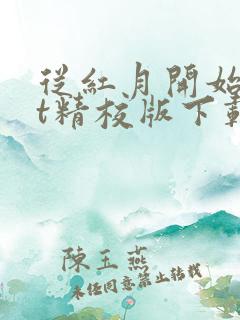 從紅月開始
t精校版下載
陳玉燕
未經同意禁止轉載